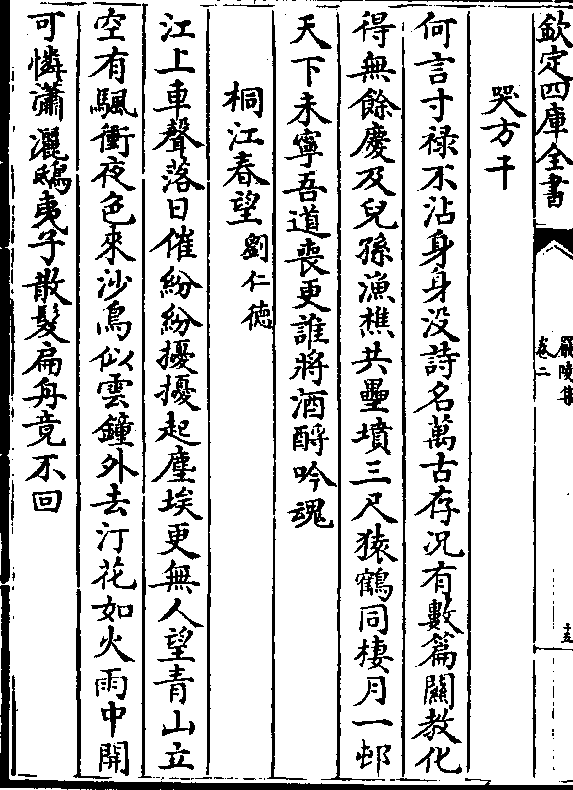 欽定四庫全書
嚴陵集
卷二
十五
哭方干
何言寸祿不沾身身没詩名萬古存况有數篇關教化
得無餘慶及兒孫漁樵共壘墳三尺猿鶴同棲月一邨
天下未寧吾道喪更誰將酒酹吟魂
桐江春望 劉仁徳
江上車聲落日催紛紛擾擾起塵埃更無人望青山立
空有颿衝夜色來沙鳥似雲鐘外去汀花如火雨中開
可憐瀟灑鴟夷子散髮扁舟竟不回